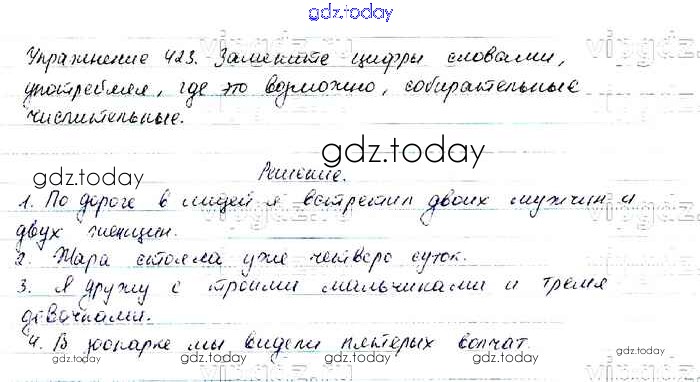 gdz.today
Упражнение 423. Замените цифры словами,
употребляя, где это возможно, собирательные
числительные.
gdz.today
Решение.
gdz.today
1. По дороге в лицей я встретил двоих мужчин и
двух женщин.
2. Жара стояла уже четверо суток.
3. Я дружу с троими мальчиками и тремя
девочками.
4. В зоопарке мы видели пятерых волчат.
gdz.today gdz.today gdz.today